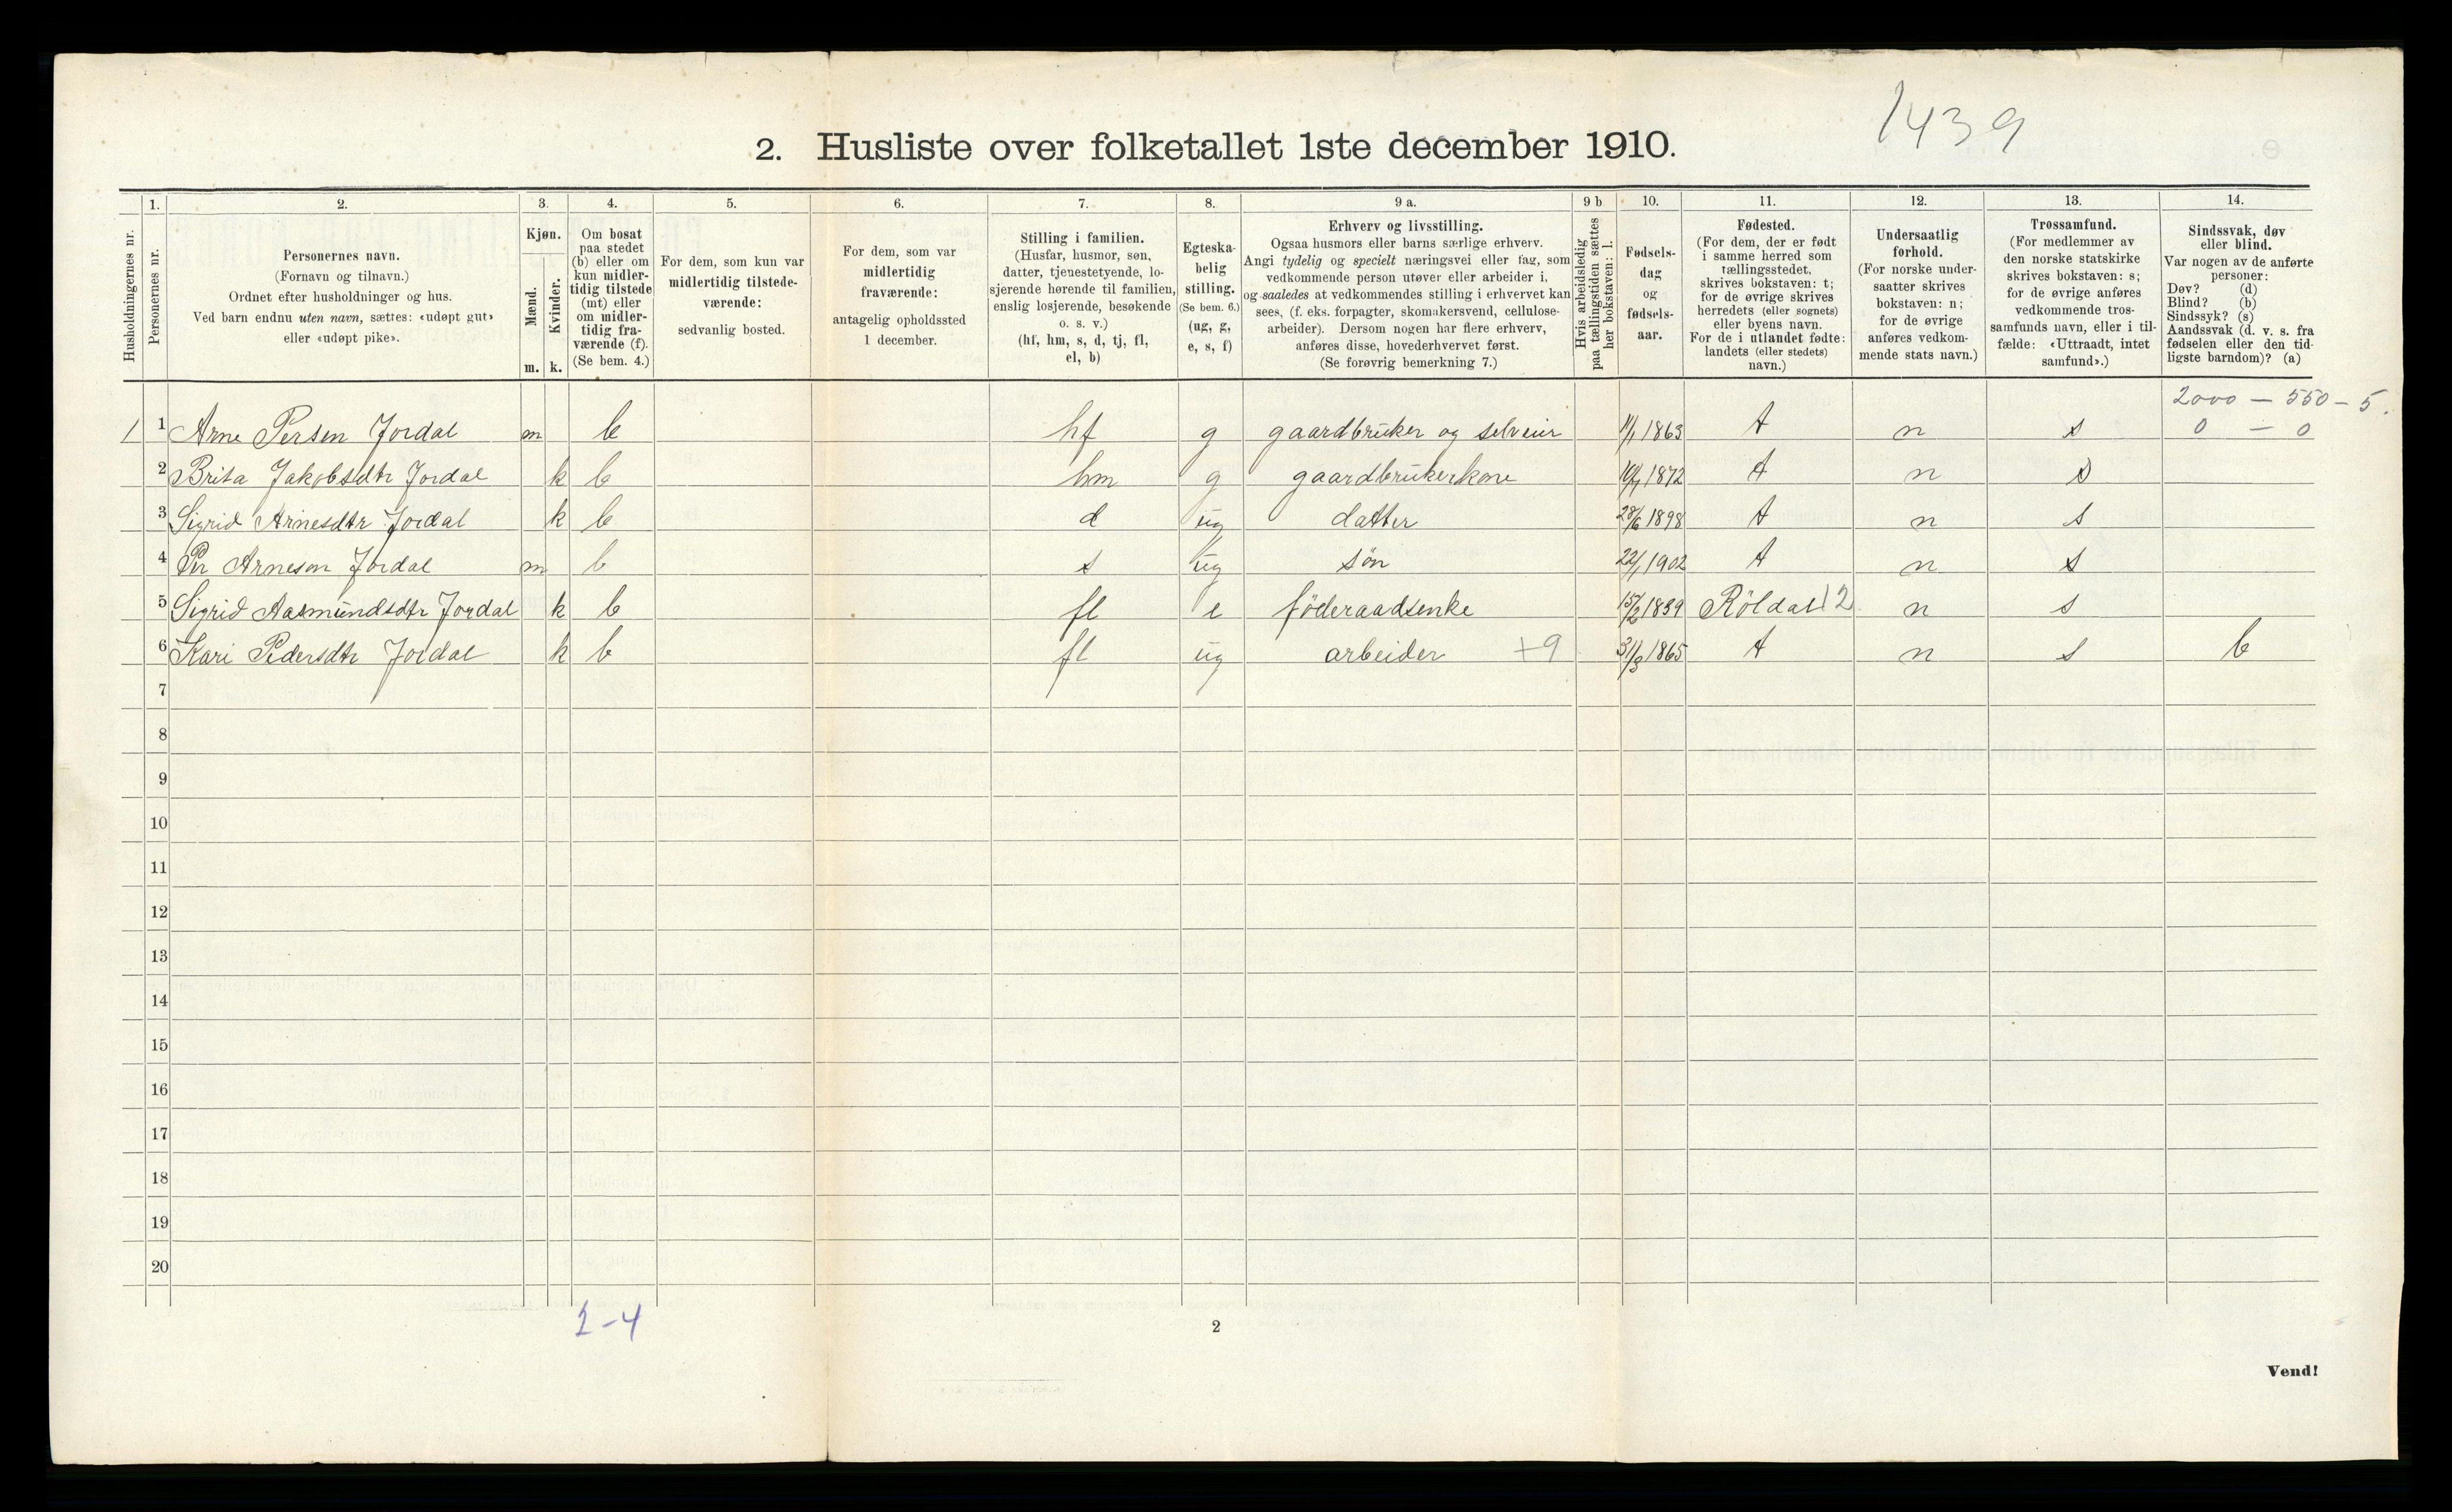 1439
2. Husliste over folketallet 1ste december 1910.
Husholdningernes nr.
1.
Personernes nr.
2.
Personernes navn.
(Fornavn og tilnavn.)
Ordnet efter husholdninger og hus.
Ved barn endnu uten navn, sættes: «udøpt gut»
eller «udøpt pike».
3.
Kjøn.
Mænd.
Kvinder.
m. k.
4.
Om bosat
paa stedet
(b) eller om
kun midler-
tidig tilstede
(mt) eller
om midler-
tidig fra-
værende (f).
(Se bem. 4.)
5.
For dem, som kun var
midlertidig tilstede-
værende:
sedvanlig bosted.
6.
For dem, som var
midlertidig
fraværende:
antagelig opholdssted
1 december.
7.
Stilling i familien.
(Husfar, husmor, søn,
datter, tjenestetyende, lo-
sjerende hørende til familien,
enslig losjerende, besøkende
o. s. v.)
(hf, hm, s, d, tj, fl,
el, b)
8.
Egteska-
belig
stilling.
(Se bem. 6.)
(ug, g,
e, s, f)
9 a.
Erhverv og livsstilling.
Ogsaa husmors eller barns særlige erhverv.
Angi tydelig og specielt næringsvei eller fag, som
vedkommende person utøver eller arbeider i,
og saaledes at vedkommendes stilling i erhvervet kan
sees, (f. eks. forpagter, skomakersvend, cellulose-
arbeider). Dersom nogen har flere erhverv,
anføres disse, hovederhvervet først.
(Se forøvrig bemerkning 7.)
9 b
Hvis arbeidsledig
paa tællingstiden sættes
her bokstaven: l.
10.
Fødsels-
dag
og
fødsels-
aar.
11.
Fødested.
(For dem, der er født
i samme herred som
tællingsstedet,
skrives bokstaven: t;
for de øvrige skrives
herredets (eller sognets)
eller byens navn.
For de i utlandet fødte:
landets (eller stedets)
navn.)
12.
Undersaatlig
forhold.
(For norske under-
saatter skrives
bokstaven: n;
for de øvrige
anføres vedkom-
mende stats navn.)
13.
Trossamfund.
(For medlemmer av
den norske statskirke
skrives bokstaven: s;
for de øvrige anføres
vedkommende tros-
samfunds navn, eller i til-
fælde: «Uttraadt, intet
samfund».)
14.
Sindssvak, døv
eller blind.
Var nogen av de anførte
personer:
Døv? (d)
Blind? (b)
Sindssyk? (s)
Aandssvak (d. v. s. fra
fødselen eller den tid-
ligste barndom)? (a)
2000 - 550 - 5.
1 1 Arne Persen Jordal m b hf g gaardbruker og selveier 11/1 1863 t n s 0 - 0
2 Brita Jakobsdtr Jordal k b hm g gaardbrukerkone 1872 t n s
3 Sigrid Arnesdtr Jordal k b d ug datter 28/6 1898 t n s
4 Per Arneson Jordal m b s ug søn 22/1 1902 t n s
5 Sigrid Aasmundsdtr Jordal k b fl e föderaadsenke 15/2 1839 Röldal 12 n s
6 Kari Pedersdtr Jordal k b fl ug arbeider +9 31/3 1865 t n s b
7
8
9
10
11
12
13
14
15
16
17
18
19
20
2-4
2
Vend!